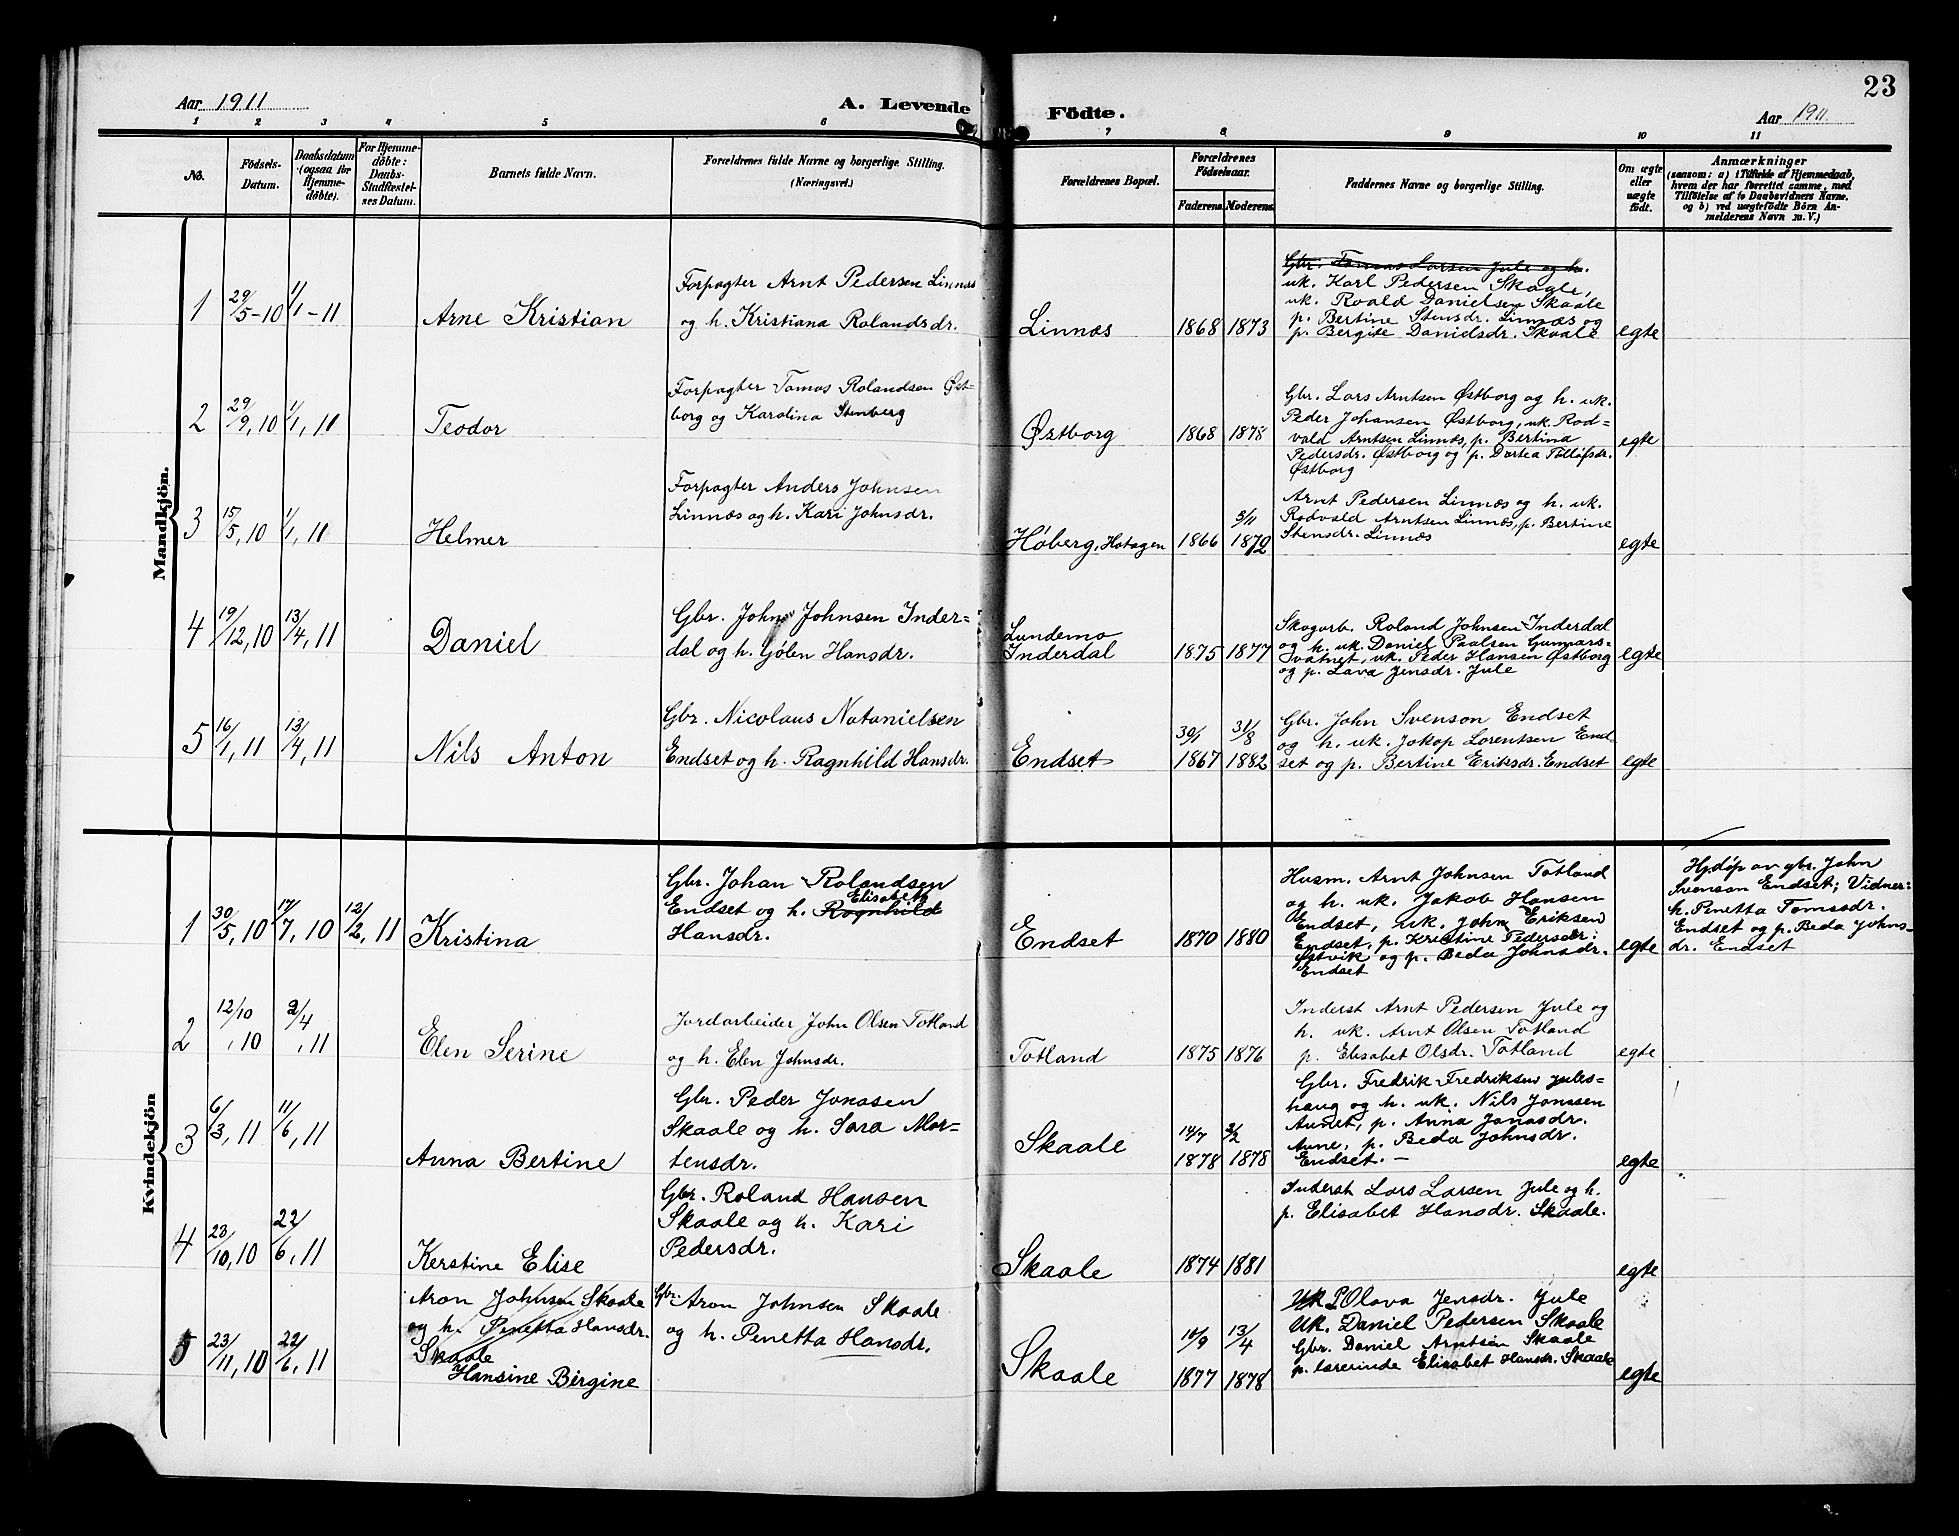 23
Aar 1911
A. Levende Födte.
Aar 1911.
1 2 3 4 5 6 7 8 9 10 11
No.
Födsels-
Datum.
Daabsdatum
(ogsaa for
Hjemme-
döbte).
For Hjemme-
döbte:
Daabs-
Stadfæstel-
ses Datum.
Barnets fulde Navn.
Forældrenes fulde Navne og borgerlige Stilling.
(Næringsvei.)
Forældrenes Bopæl.
Forældrenes
Födselsaar.
Faderens. Moderens.
Faddernes Navne og borgerlige Stilling.
Om ægte
eller
uægte
födt.
Anmærkninger
(saasom: a) i Tilfælde af Hjemmedaab,
hvem der har forrettet samme, med
Tilföielse af to Daabsvidners Navne.
og b) ved uægtefödte Börn An-
melderens Navn m. V.)
Mandkjön.
1
29/5-10
1/1-11
Arne Kristian
Forpagter Arnt Pedersen Linnæs
og h. Kristiana Rolandsdr.
Linnæs
1868 1873
Gbr. Tomas Larsen Jule og h.
uk. Karl Pedersen Skaale,
uk. Roald Danielsen Skaale
p. Bertine Stensdr. Linnæs og
p. Bergite Danielsdr. Skaale
egte
2
29/9, 10
1/1, 11
Teodor
Forpagter Tomas Rolandsen Øst-
borg og Karolina Stenberg
Østborg
1868 1878
Gbr. Lars Arntsen Østborg og h. uk.
Peder Johansen Østborg, uk. Rod=
vald Arntsen Linnæs, p. Bertina
Pedersdr. Østborg og p. Dortea Tollefsdr.
Østborg
egte
3
15/5, 10
1/1, 11
Helmer
Forpagter Anders Johnsen
Linnæs og h. Kari Johnsdr.
Høberg, Hotagen
1866
5/11
1872
Arnt Pedersen Linnæs og h. uk.
Rodvald Arntsen Linnæs, p. Bertine
Stensdr. Linnæs
egte
4
19/12, 10
13/4, 11
Daniel
Gbr. John Johnsen Inder=
dal og h. Gølen Hansdr.
Lundemo
Inderdal
1875 1877
Skogarb. Roland Johnsen Inderdal
og h. uk. Daniel Paalsen Gunnars-
vatnet, uk. Peder Hansen Østborg
og p. Lava Jensdr. Jule
egte
5
16/1, 11
13/4, 11
Nils Anton
Gbr. Nicolaus Natanielsen
Endset og h. Ragnhild Hansdr.
Endset
30/1 31/8
1867 1882
Gbr. John Svenson Endset
og h. uk. Jakop Lorentsen End-
set og p. Bertine Eriksdr. Endset
egte
Kvindekjön
1
30/5, 10
17/7, 10
12/2, 11
Kristina
Gbr. Johan Rolandsen
Elisabeth
Endset og h. Ragnhild
Hansdr.
Endset
1870 1880
Husm. Arnt Johnsen Totland
og h. uk. Jakob Hansen
Endset, uk. John Eriksen
Endset, p. Kristine Pedersdr.
Østvik og p. Beda Johnsdr.
Endset
egte
Hjdøp av gbr. John
Svenson Endset; Vidner:
h. Penetta Tomasdr.
Endset og p. Beda Johns-
dr. Endset
2
12/10, 10
2/4, 11
Elen Serine
Jordarbeider John Olsen Totland
og h. Elen Johnsdr.
Totland
1875 1876
Inderst Arnt Pedersen Jule og
h. uk. Arnt Olsen Totland
p. Elisabet Olsdr. Totland
egte
3
6/3, 11
11/6, 11
Anna Bertine
Gbr. Peder Jonasen
Skaale og h. Sara Mor-
tensdr.
Skaale
14/7 2/2
1878 1878
Gbr. Fredrik Fredriksen Jules-
haug og h. uk. Nils Jonssen
Aunet, p. Anna Jonasdr.
Aune, p. Beda Johnsdr.
Endset. –
egte
4
23/10, 10
22/6, 11
Kerstine Elise
Gbr. Roland Hansen
Skaale og h. Kari
Pedersdr.
Skaale
1874 1881
Inderst Lars Larsen Jule og h.
p. Elisabet Hansdr. Skaale.
egte
5
23/11, 10
22/6, 11
Aron Johnsen Skaale
og h. Penetta Hansdr.
Skaale
Hansine Bergine
Gbr. Aron Johnsen Skaale
og h. Penetta Hansdr.
Skaale
10/9 13/4
1877 1878
P Olava Jensdr. Jule
Uk. Daniel Pedersen Skaale
Gbr. Daniel Arntsen Skaale
p. lærerinde Elisabet Hansdr. Skaale
egte